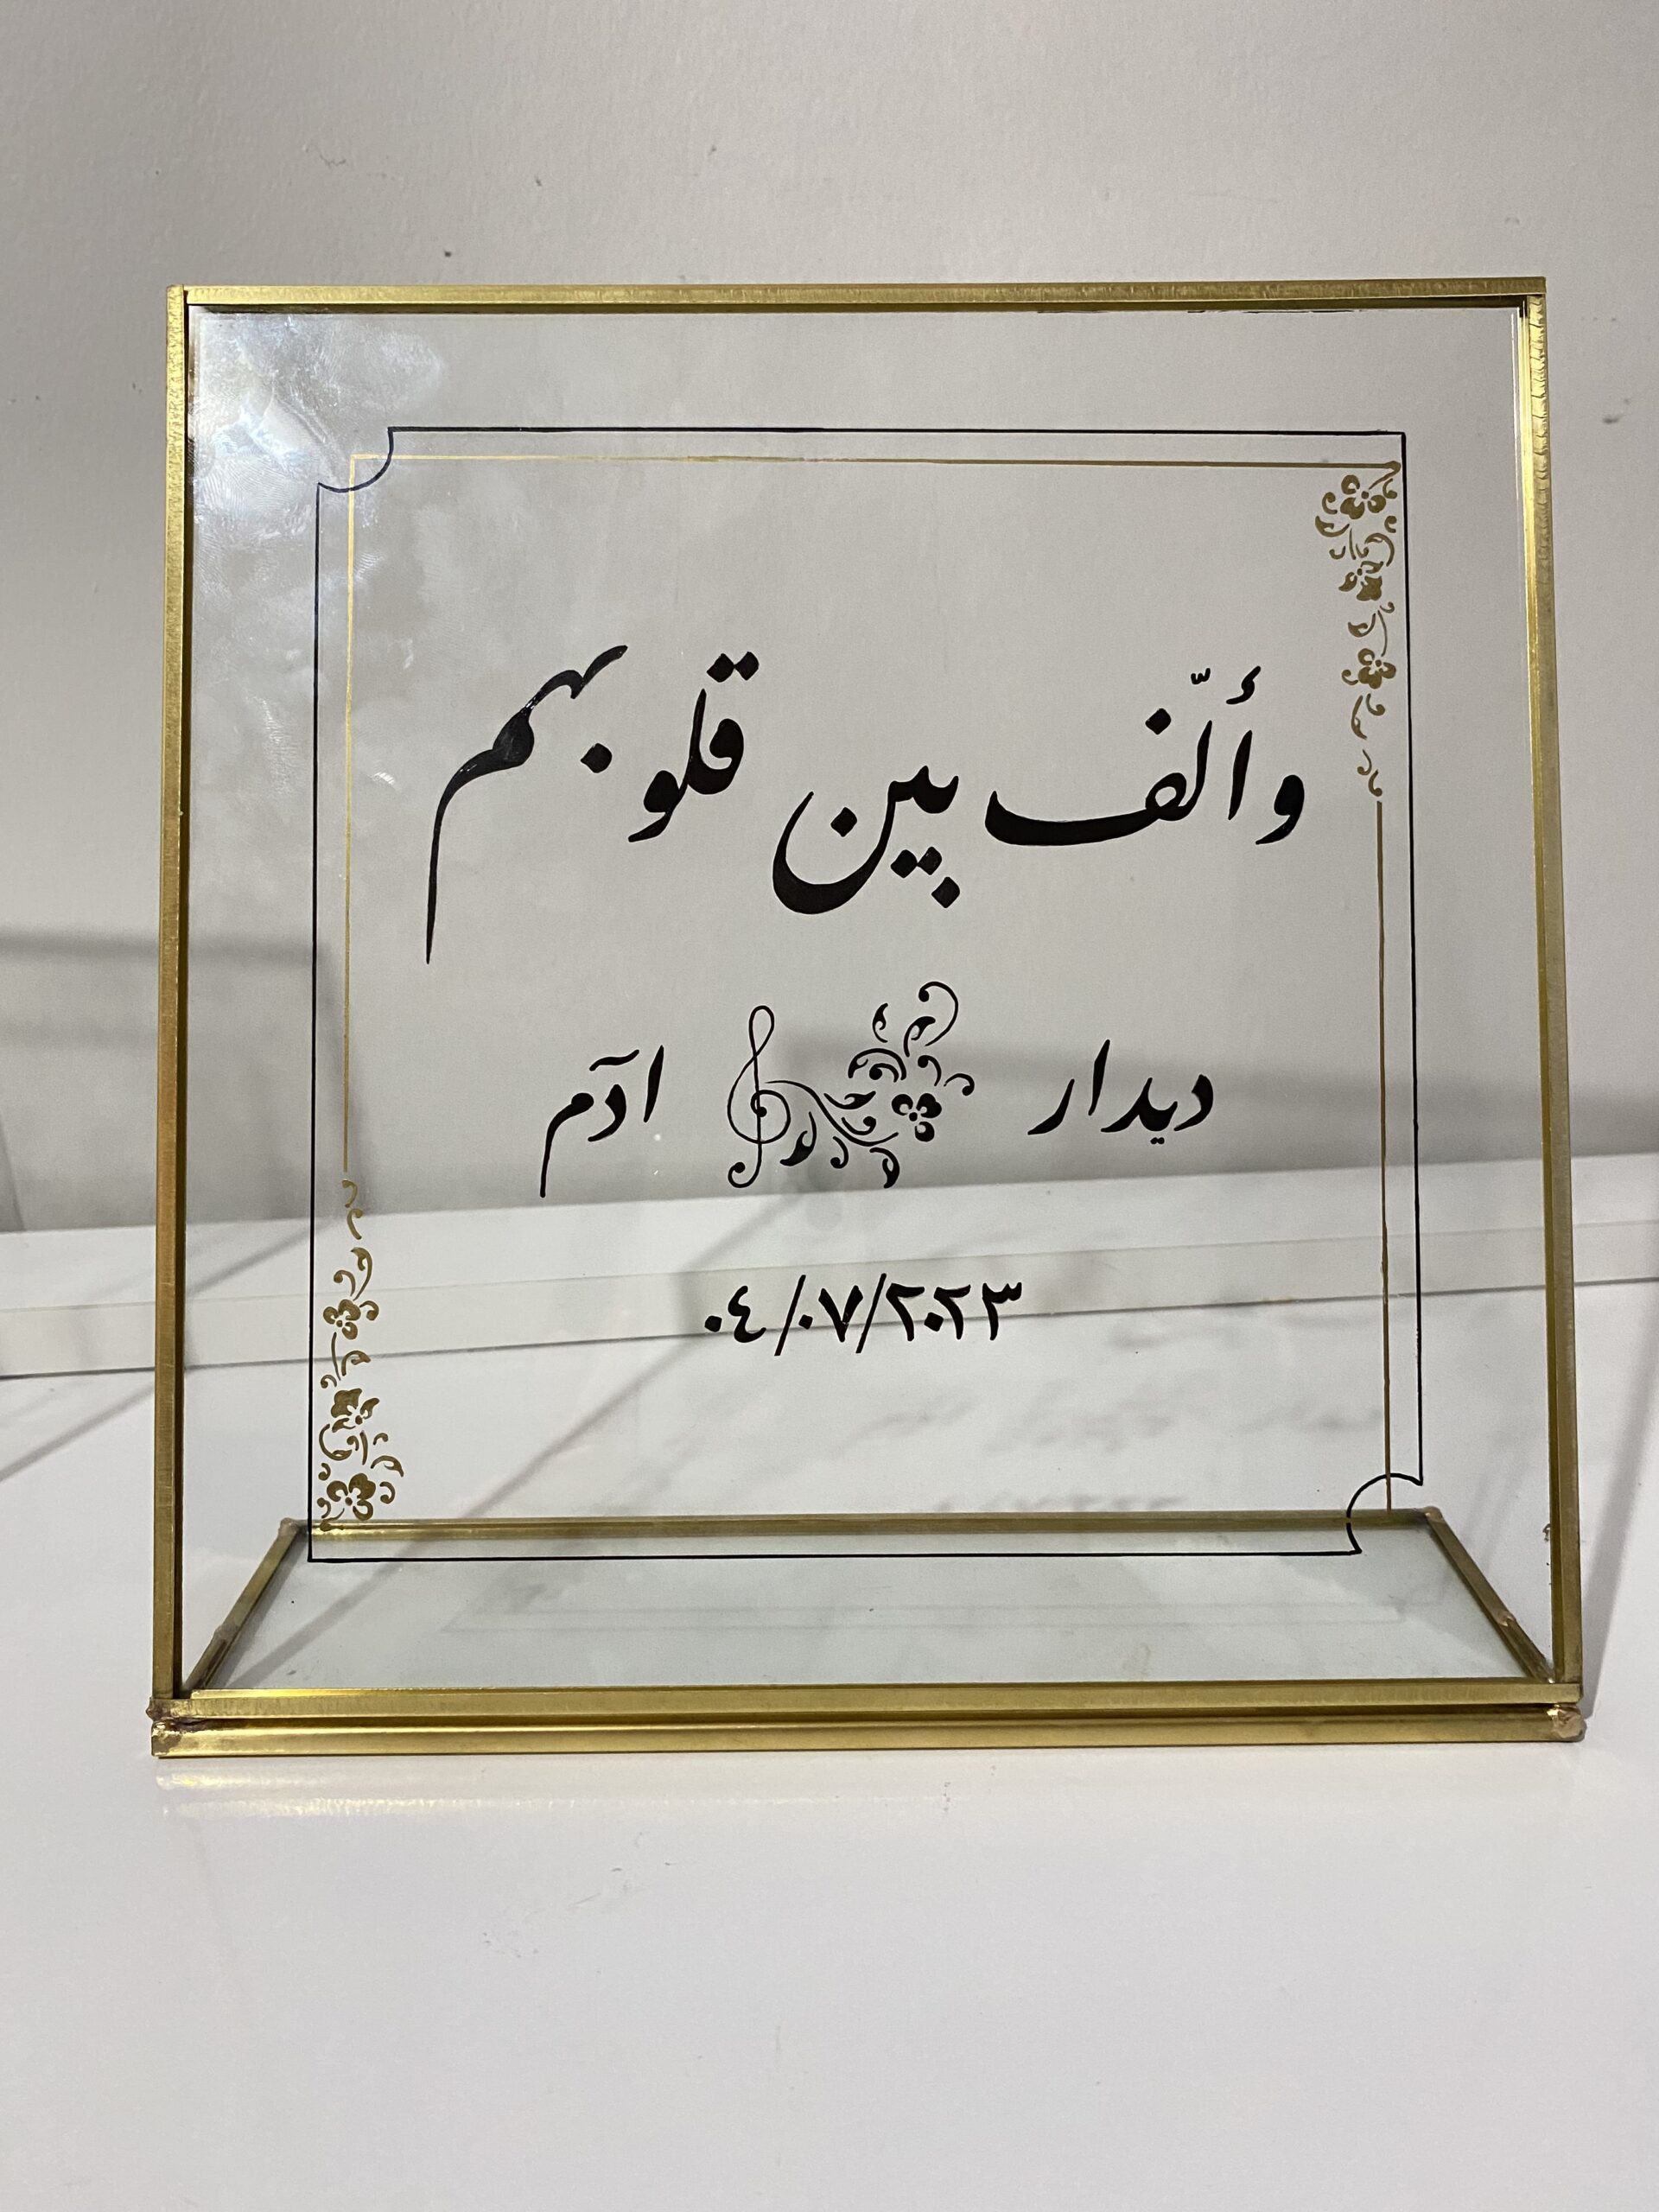 وألّف بين قلوبهم
ديدار ادٓم
٠٤/٠٧/٢٠٢٣